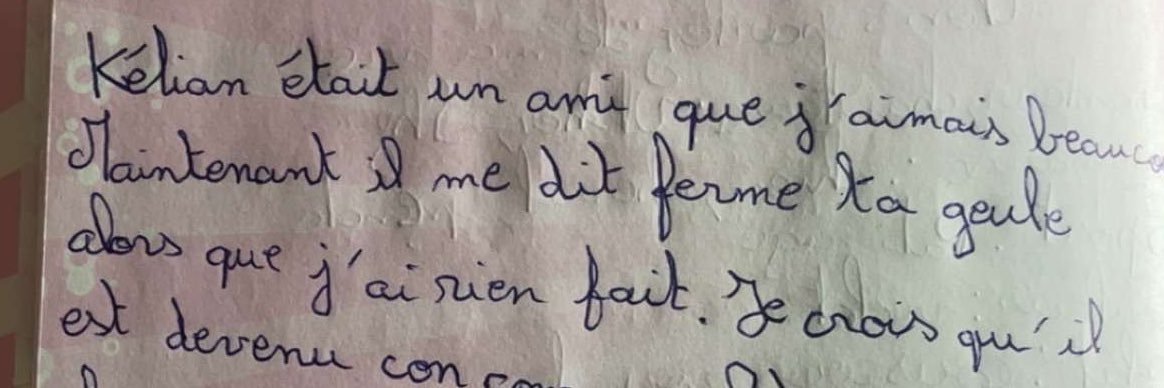 Kélian était un ami que j'aimais beauco
Maintenant il me dit ferme ta geule
alors que j'ai rien fait. Je crois qu'il
est devenu con